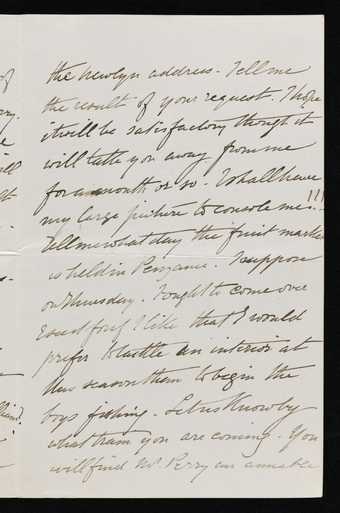 the Newlyn address. Tell me
the result of your request. I hope
it will be satisfactory though it
will take you away from me
for a month or so. I shall have
my large picture to console me!!!
Tell me what day the fruit market
is held in Penzance. I suppose
on Thursday. I ought to come over
I like that I would
prefer to tackle an interior at
this season than to begin the
boys fishing. Let us know by
what train you are coming. You
will find Mr Perry an amiable